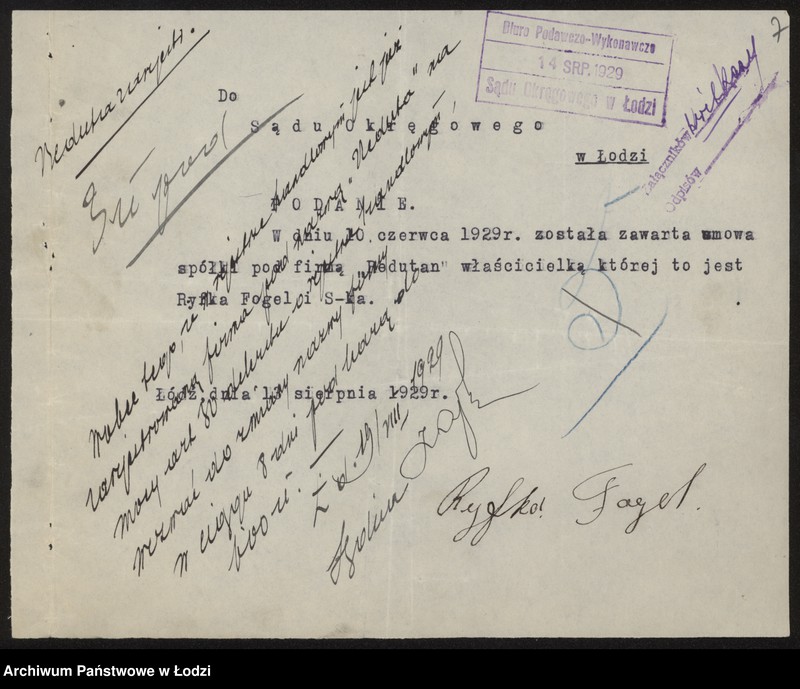 7
Biuro Podawczo-Wykonawcze
14 SRP. 1929
Sądu Okręgowego w Łodzi
Załączników
Odpisów
Do
Sądu Okręgowego
w Łodzi
PODANIE.
W dniu 10 czerwca 1929r. została zawarta umowa
spółki pod firmą "Redutan" właścicielką której to jest
Ryfka Fogel i S-ka.
Łódź dnia 13 sierpnia 1929r.
Ryfka Fogel.
Wobec tego, iż w rejestrze handlowym jest już
zarejestrowana firma pod nazwą "Reduta" na
mocy art 80 dekretu o rejestrze handlowym
wezwać do zmiany nazwy firmy
w ciągu 8 dni pod karą do
Ł. d. 19/VIII 1929
Sędzia
Archiwum Państwowe w Łodzi